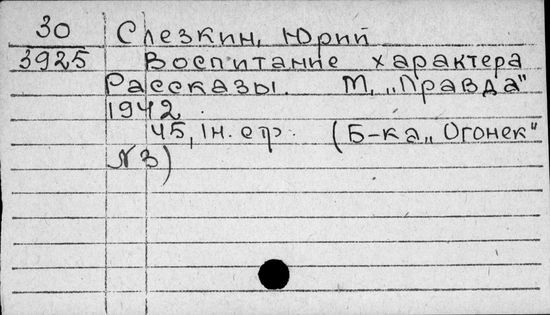 30 Слезкин, Юрий
3925 Воспитание характера
Рассказы. М, „Правда"
1942.
45, 1н. стр. (Б-ка „Огонек"
N 3)